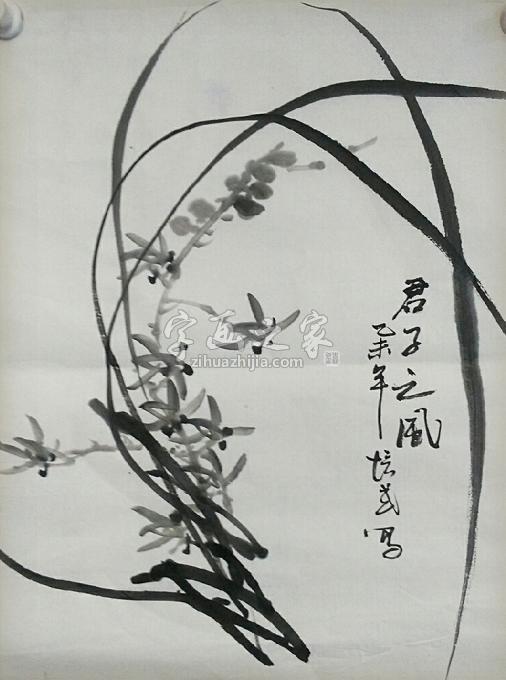 君子之風
乙未年 培武寫
字画之家
zihuazhijia.com